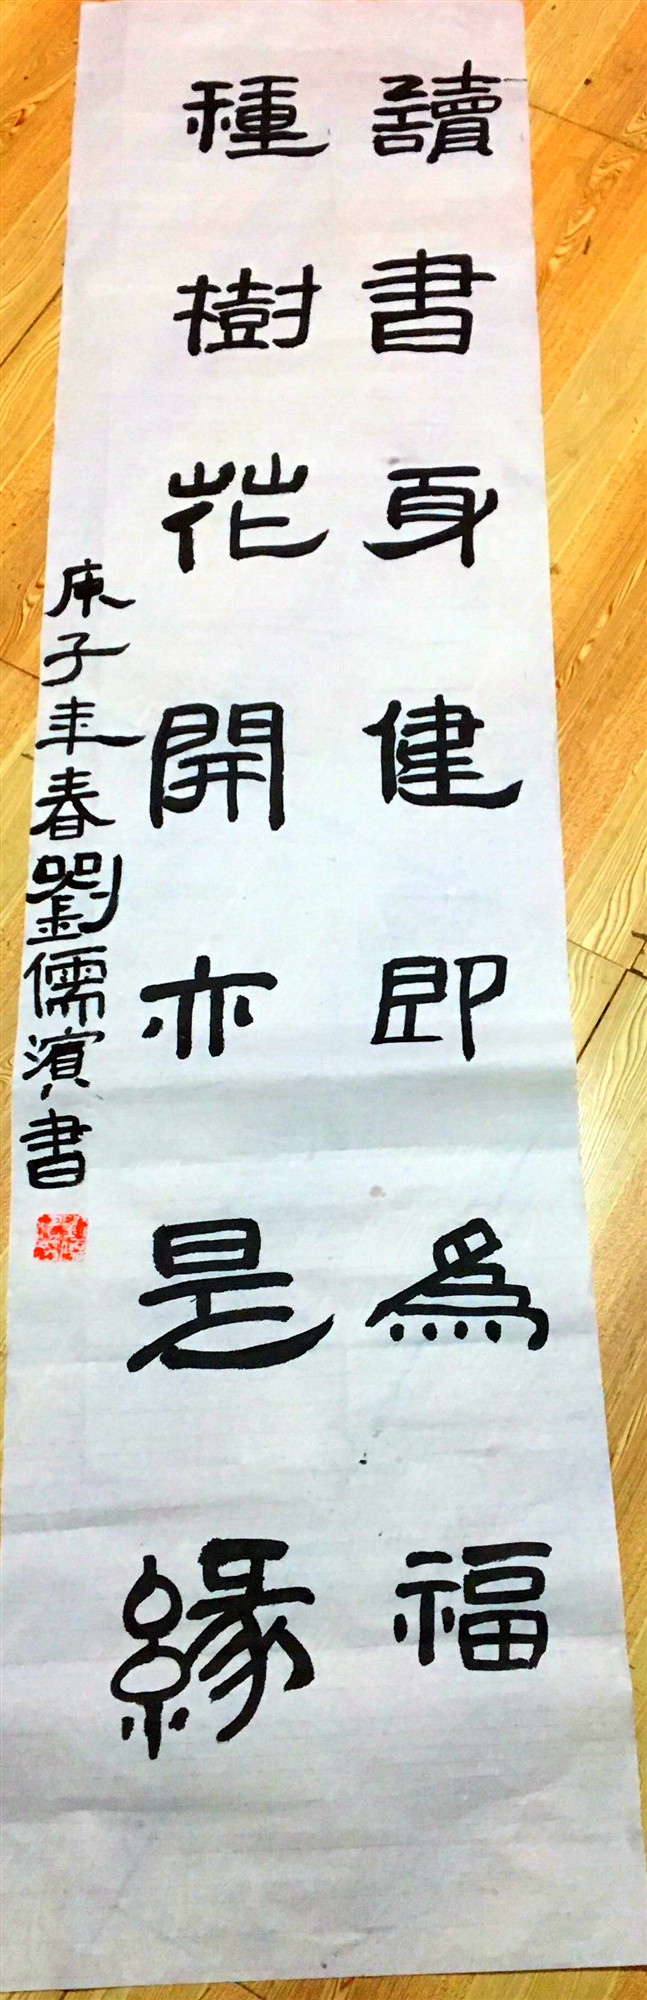 讀書身健即為福
種樹花開亦是緣
庚子年春劉儒濱書